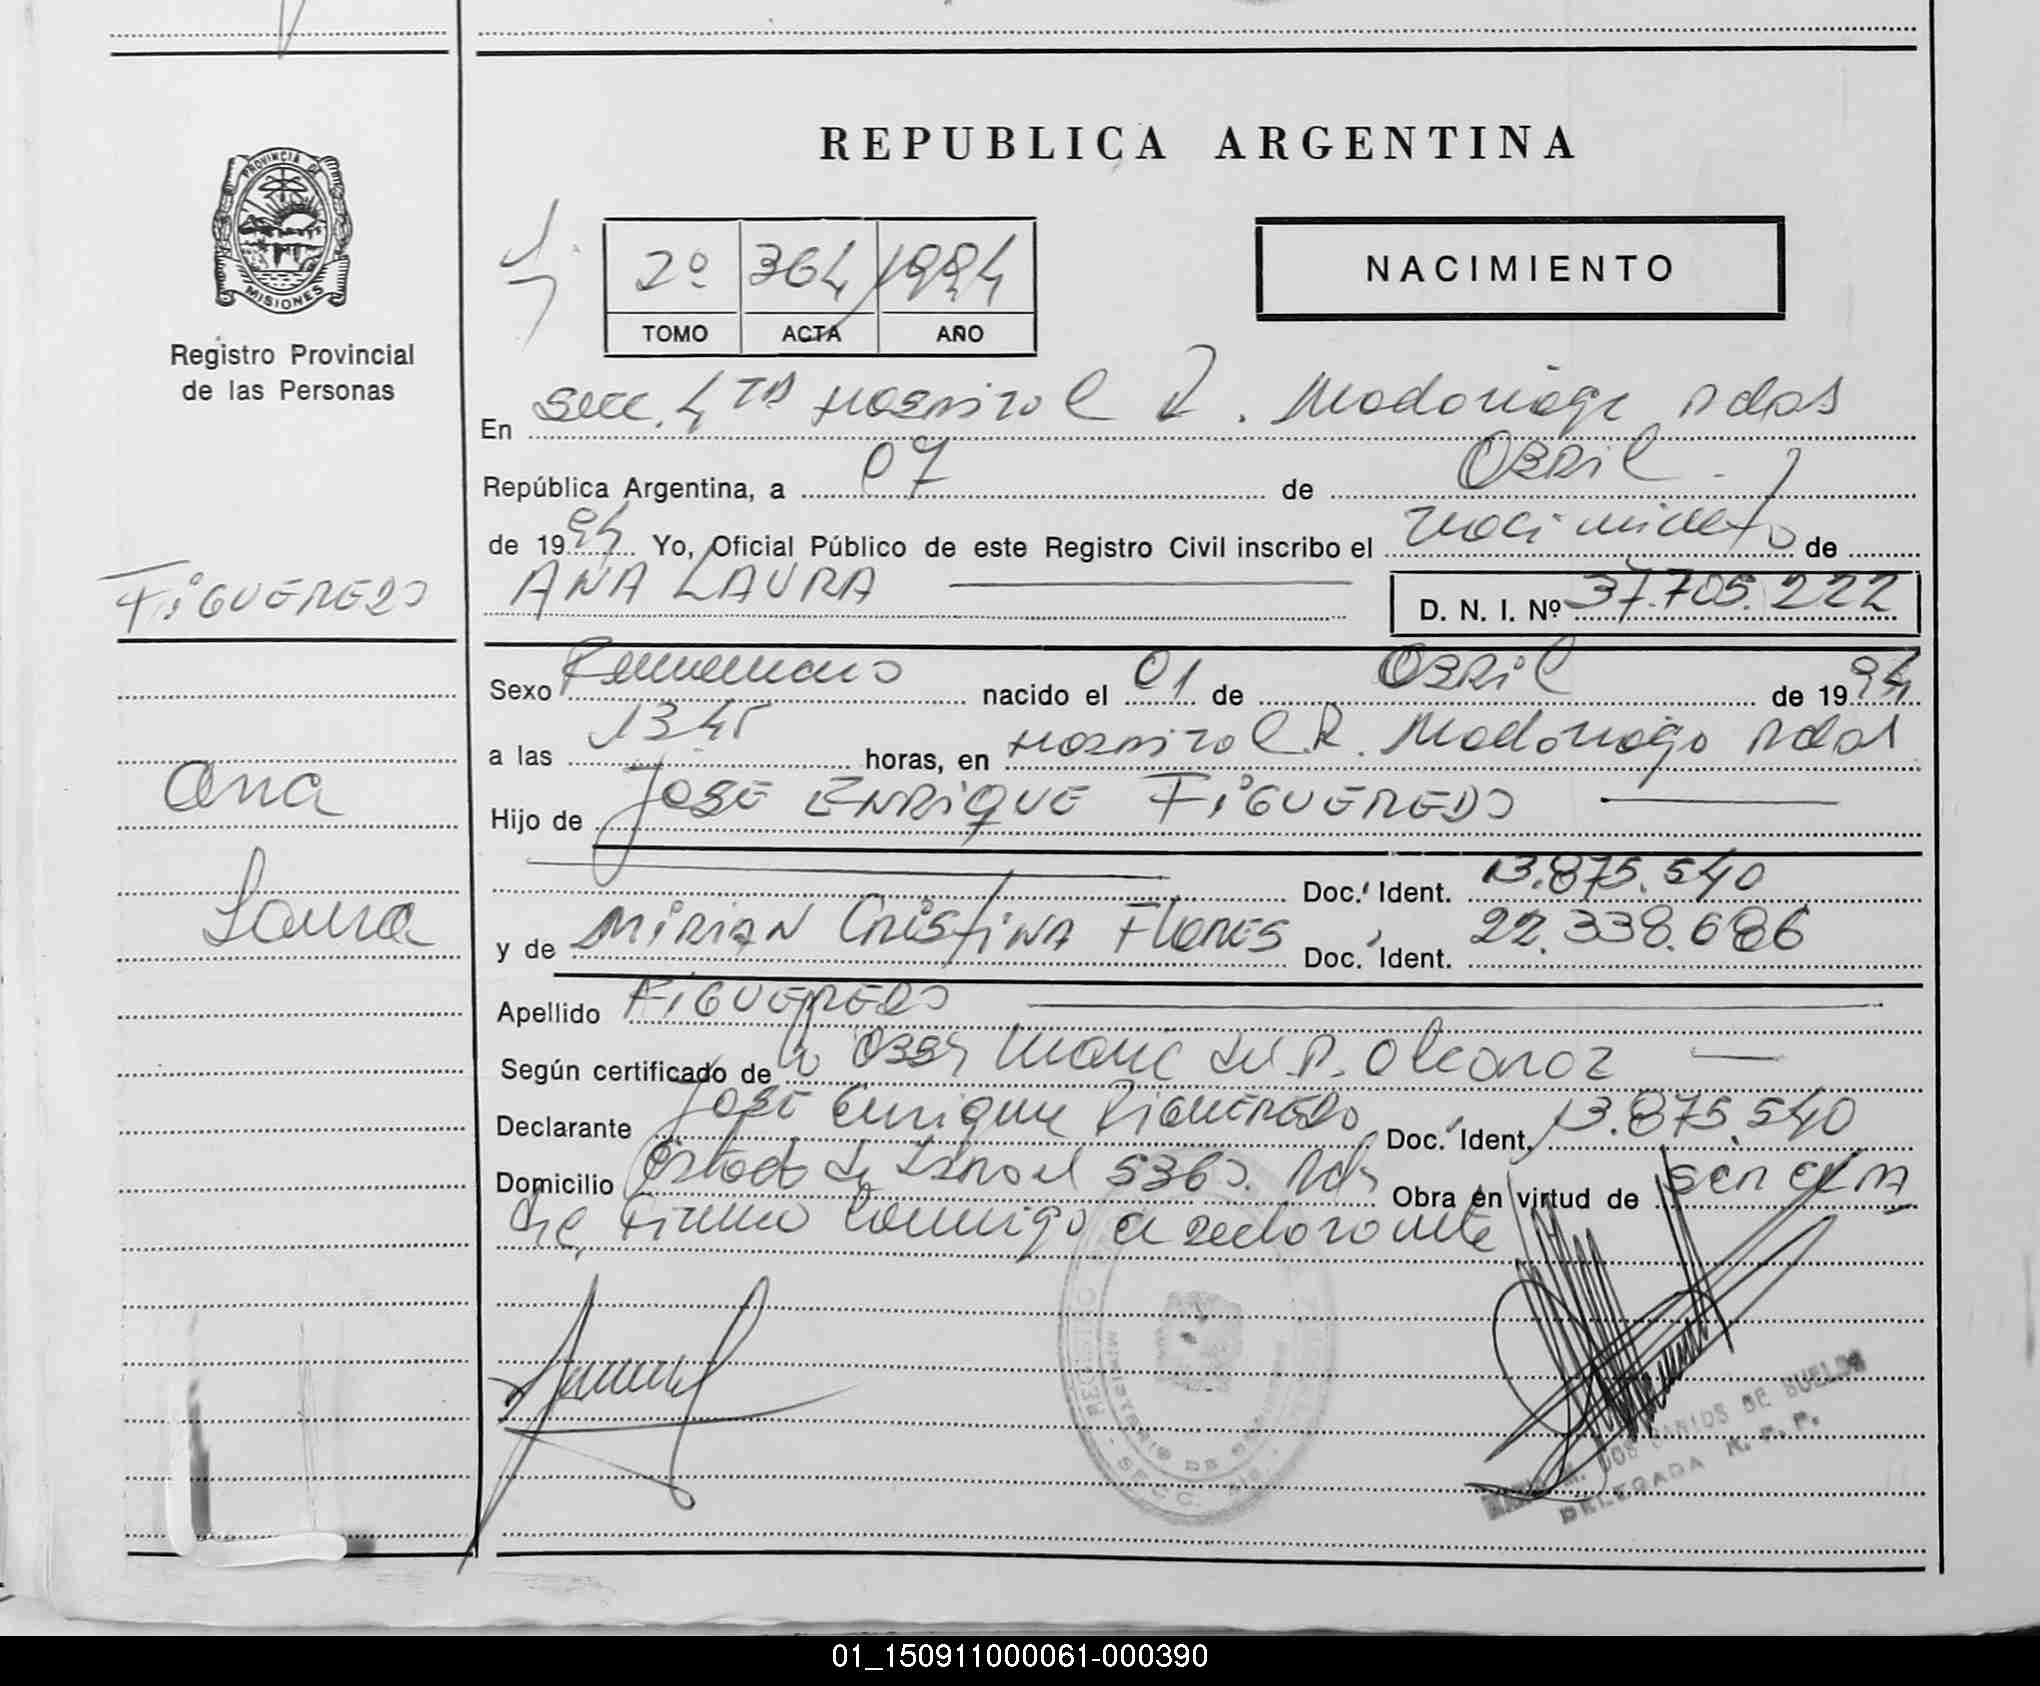 PROVINCIA DE
MISIONES
Registro Provincial
de las Personas
FIGUEREDO
Ana
Laura
REPUBLICA ARGENTINA
2º 364 1994
TOMO ACTA AÑO
NACIMIENTO
En Secc. 4TA Hospital R. Madariaga Pdas
República Argentina, a 07 de Abril
de 1994 Yo, Oficial Público de este Registro Civil inscribo el nacimiento de
ANA LAURA D. N. I. Nº 37.705.222
Sexo Femenino nacido el 01 de Abril de 1994
a las 1345 horas, en Hospital R. Madariaga Pdas
Hijo de JOSE ENRIQUE FIGUEREDO
Doc. Ident. 13.875.540
y de MIRIAN CRISTINA FLORES Doc. Ident. 22.338.686
Apellido FIGUEREDO
Según certificado de la Obst Maria del
Declarante JOSE Enrique FIGUEREDO Doc. Ident. 13.875.540
Domicilio Estado de Israel 5363 Pdas Obra en virtud de ser el PA
dre, Firma conmigo el declarante
DOS SANTOS DE
DELEGADA R. P. P.
01_150911000061-000390